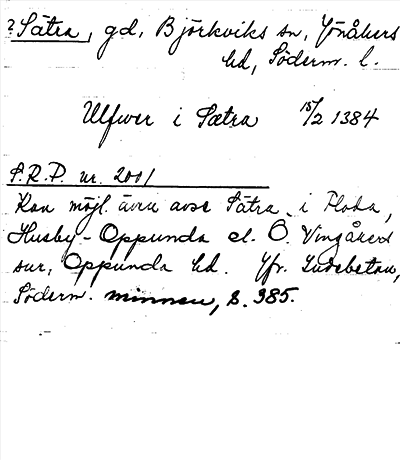 ? Sätra, gd, Björkviks sn, Jönåkers
hd, Söderm. l.
Ulfwer i Sætra 15/2 1384
S.R.P. nr. 2001
Kan möjl. även avse Sätra i Floda,
Husby-Oppunda el. Ö. Vingåkers
snr, Oppunda hd. Jfr.
Söderm. minnen, s. 385.